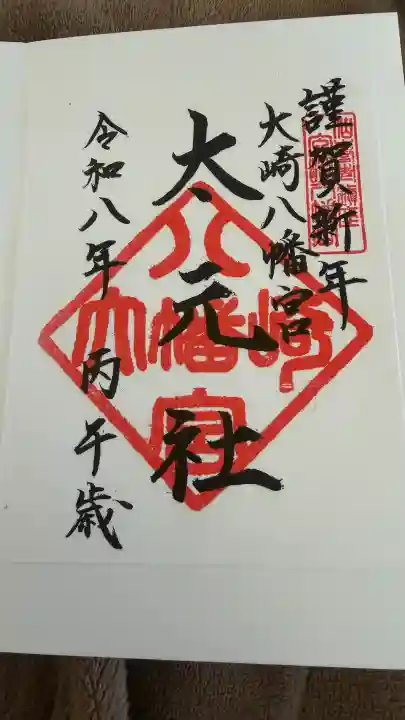 謹賀新年
大崎八幡宮
大元社
令和八年 丙午歳
八
大幡崎
宮